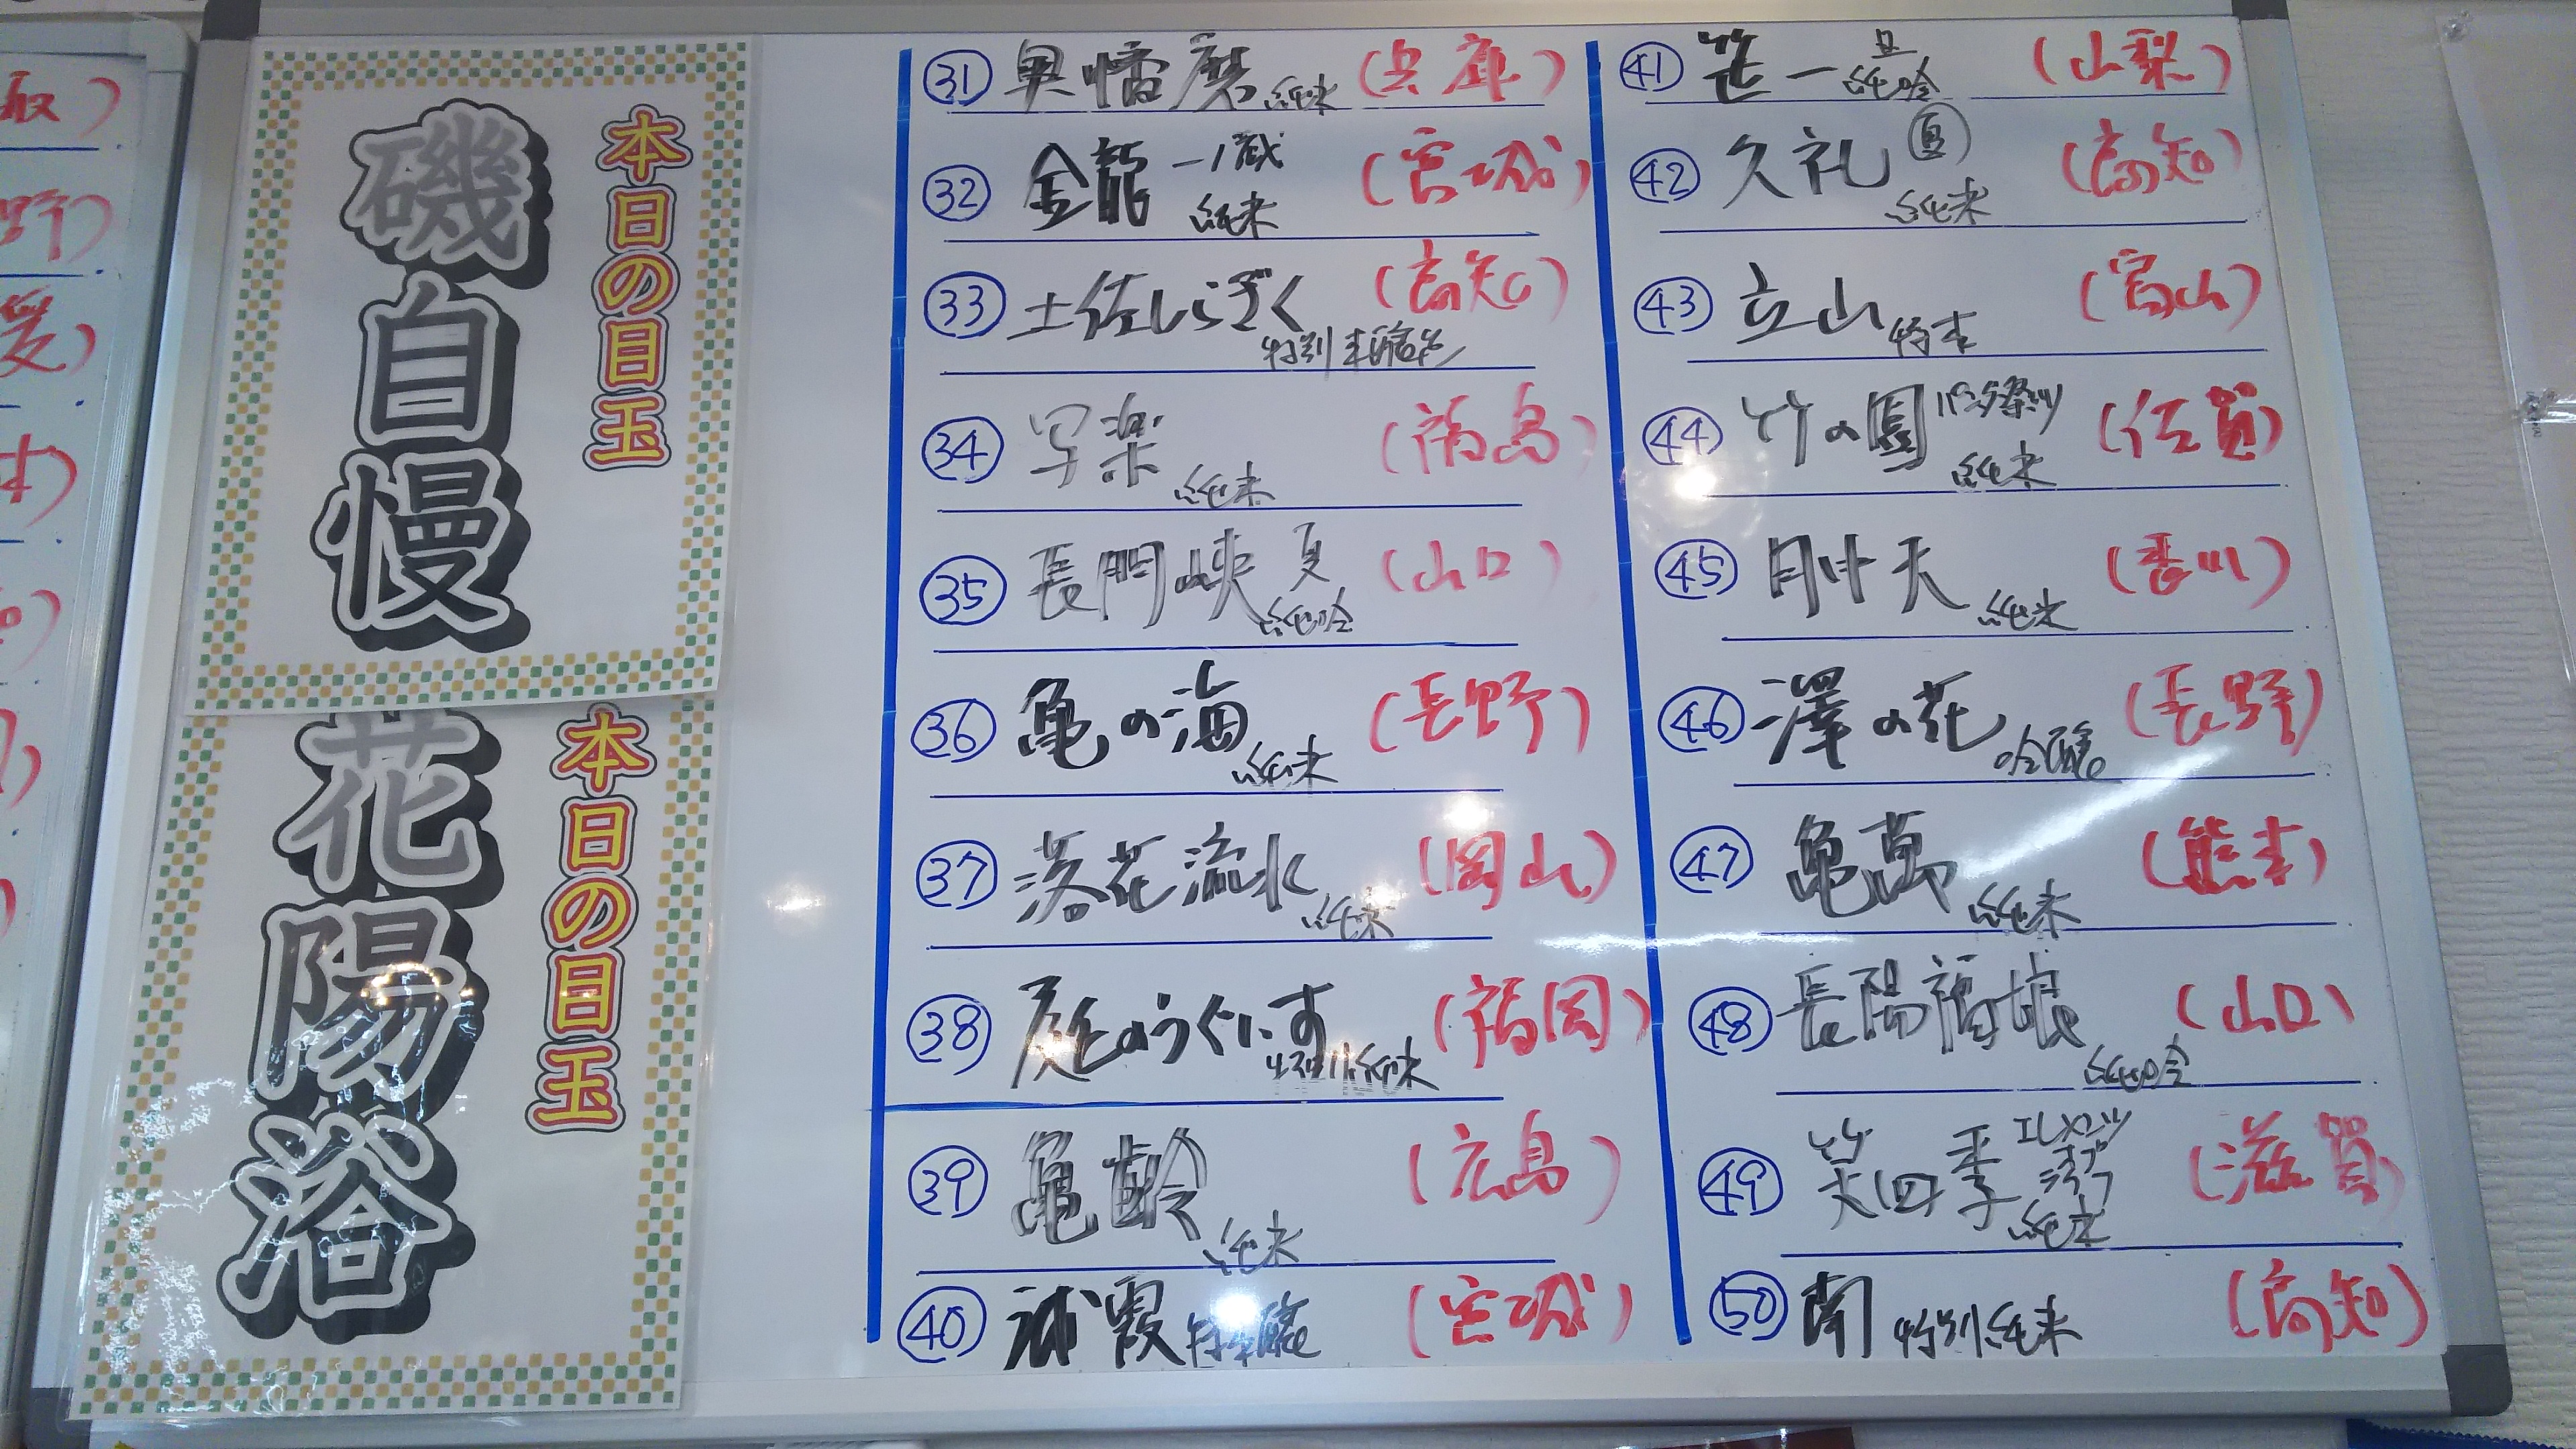 本日の目玉
磯自慢
本日の目玉
花陽浴
㉛ 奥播磨 純米 (兵庫)
㉜ 金龍 一ノ蔵 純米 (宮城)
㉝ 土佐しらぎく 特別本醸造 (高知)
㉞ 写楽 純米 (福島)
㉟ 長門峡 夏 純吟 (山口)
㊱ 亀の海 純米 (長野)
㊲ 落花流水 純米 (岡山)
㊳ 庭のうぐいす 特別純米 (福岡)
㊴ 亀齢 純米 (広島)
㊵ 浦霞 特本醸 (宮城)
㊶ 笹一 旦 純吟 (山梨)
㊷ 久礼 夏 純米 (高知)
㊸ 立山 特本 (富山)
㊹ 竹の園 パンダ祭り 純米 (佐賀)
㊺ 川鶴 純米 (香川)
㊻ 澤の花 吟醸 (長野)
㊼ 亀萬 純米 (熊本)
㊽ 長陽福娘 純吟 (山口)
㊾ 笑四季 純米 (滋賀)
㊿ 南 特別純米 (高知)